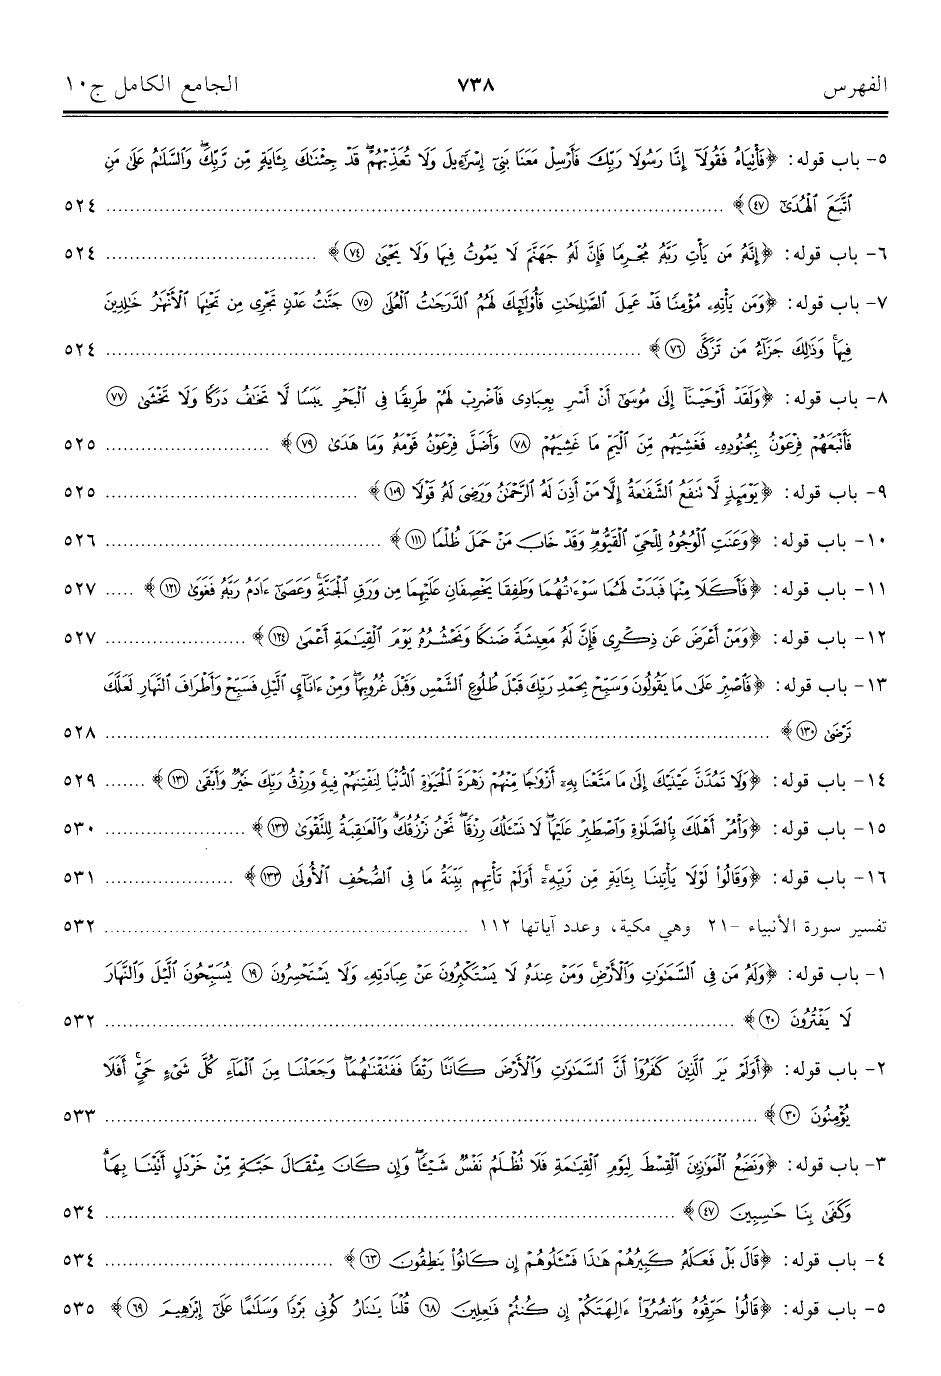 الفهرس ٧٣٨ الجامع الكامل ج١٠
٥- باب قوله: ﴿فَأْتِيَاهُ فَقُولَآ إِنَّا رَسُولَا رَبِّكَ فَأَرْسِلْ مَعَنَا بَنِىٓ إِسْرَٰٓءِيلَ وَلَا تُعَذِّبْهُمْۖ قَدْ جِئْنَٰكَ بِـَٔايَةٍ مِّن رَّبِّكَۖ وَٱلسَّلَٰمُ عَلَىٰ مَنِ
ٱتَّبَعَ ٱلْهُدَىٰٓ ﴿٤٧﴾ ........ ٥٢٤
٦- باب قوله: ﴿إِنَّهُۥ مَن يَأْتِ رَبَّهُۥ مُجْرِمًا فَإِنَّ لَهُۥ جَهَنَّمَ لَا يَمُوتُ فِيهَا وَلَا يَحْيَىٰ ﴿٧٤﴾ ........ ٥٢٤
٧- باب قوله: ﴿وَمَن يَأْتِهِۦ مُؤْمِنًا قَدْ عَمِلَ ٱلصَّٰلِحَٰتِ فَأُو۟لَٰٓئِكَ لَهُمُ ٱلدَّرَجَٰتُ ٱلْعُلَىٰ ﴿٧٥﴾ جَنَّٰتُ عَدْنٍ تَجْرِى مِن تَحْتِهَا ٱلْأَنْهَٰرُ خَٰلِدِينَ
فِيهَاۚ وَذَٰلِكَ جَزَآءُ مَن تَزَكَّىٰ ﴿٧٦﴾ ........ ٥٢٤
٨- باب قوله: ﴿وَلَقَدْ أَوْحَيْنَآ إِلَىٰ مُوسَىٰٓ أَنْ أَسْرِ بِعِبَادِى فَٱضْرِبْ لَهُمْ طَرِيقًا فِى ٱلْبَحْرِ يَبَسًا لَّا تَخَٰفُ دَرَكًا وَلَا تَخْشَىٰ ﴿٧٧﴾
فَأَتْبَعَهُمْ فِرْعَوْنُ بِجُنُودِهِۦ فَغَشِيَهُم مِّنَ ٱلْيَمِّ مَا غَشِيَهُمْ ﴿٧٨﴾ وَأَضَلَّ فِرْعَوْنُ قَوْمَهُۥ وَمَا هَدَىٰ ﴿٧٩﴾ ........ ٥٢٥
٩- باب قوله: ﴿يَوْمَئِذٍ لَّا تَنفَعُ ٱلشَّفَٰعَةُ إِلَّا مَنْ أَذِنَ لَهُ ٱلرَّحْمَٰنُ وَرَضِىَ لَهُۥ قَوْلًا ﴿١٠٩﴾ ........ ٥٢٥
١٠- باب قوله: ﴿وَعَنَتِ ٱلْوُجُوهُ لِلْحَىِّ ٱلْقَيُّومِۖ وَقَدْ خَابَ مَنْ حَمَلَ ظُلْمًا ﴿١١١﴾ ........ ٥٢٦
١١- باب قوله: ﴿فَأَكَلَا مِنْهَا فَبَدَتْ لَهُمَا سَوْءَٰتُهُمَا وَطَفِقَا يَخْصِفَانِ عَلَيْهِمَا مِن وَرَقِ ٱلْجَنَّةِۚ وَعَصَىٰٓ ءَادَمُ رَبَّهُۥ فَغَوَىٰ ﴿١٢١﴾ ..... ٥٢٧
١٢- باب قوله: ﴿وَمَنْ أَعْرَضَ عَن ذِكْرِى فَإِنَّ لَهُۥ مَعِيشَةً ضَنكًا وَنَحْشُرُهُۥ يَوْمَ ٱلْقِيَٰمَةِ أَعْمَىٰ ﴿١٢٤﴾ ........ ٥٢٧
١٣- باب قوله: ﴿فَٱصْبِرْ عَلَىٰ مَا يَقُولُونَ وَسَبِّحْ بِحَمْدِ رَبِّكَ قَبْلَ طُلُوعِ ٱلشَّمْسِ وَقَبْلَ غُرُوبِهَاۖ وَمِنْ ءَانَآئِ ٱلَّيْلِ فَسَبِّحْ وَأَطْرَافَ ٱلنَّهَارِ لَعَلَّكَ
تَرْضَىٰ ﴿١٣٠﴾ ........ ٥٢٨
١٤- باب قوله: ﴿وَلَا تَمُدَّنَّ عَيْنَيْكَ إِلَىٰ مَا مَتَّعْنَا بِهِۦٓ أَزْوَٰجًا مِّنْهُمْ زَهْرَةَ ٱلْحَيَوٰةِ ٱلدُّنْيَا لِنَفْتِنَهُمْ فِيهِۚ وَرِزْقُ رَبِّكَ خَيْرٌ وَأَبْقَىٰ ﴿١٣١﴾ ....... ٥٢٩
١٥- باب قوله: ﴿وَأْمُرْ أَهْلَكَ بِٱلصَّلَوٰةِ وَٱصْطَبِرْ عَلَيْهَاۖ لَا نَسْـَٔلُكَ رِزْقًاۖ نَّحْنُ نَرْزُقُكَۗ وَٱلْعَٰقِبَةُ لِلتَّقْوَىٰ ﴿١٣٢﴾ ........ ٥٣٠
١٦- باب قوله: ﴿وَقَالُوا۟ لَوْلَا يَأْتِينَا بِـَٔايَةٍ مِّن رَّبِّهِۦٓۚ أَوَلَمْ تَأْتِهِم بَيِّنَةُ مَا فِى ٱلصُّحُفِ ٱلْأُولَىٰ ﴿١٣٣﴾ ........ ٥٣١
تفسير سورة الأنبياء -٢١ وهي مكية، وعدد آياتها ١١٢ ........ ٥٣٢
١- باب قوله: ﴿وَلَهُۥ مَن فِى ٱلسَّمَٰوَٰتِ وَٱلْأَرْضِۚ وَمَنْ عِندَهُۥ لَا يَسْتَكْبِرُونَ عَنْ عِبَادَتِهِۦ وَلَا يَسْتَحْسِرُونَ ﴿١٩﴾ يُسَبِّحُونَ ٱلَّيْلَ وَٱلنَّهَارَ
لَا يَفْتُرُونَ ﴿٢٠﴾ ........ ٥٣٢
٢- باب قوله: ﴿أَوَلَمْ يَرَ ٱلَّذِينَ كَفَرُوٓا۟ أَنَّ ٱلسَّمَٰوَٰتِ وَٱلْأَرْضَ كَانَتَا رَتْقًا فَفَتَقْنَٰهُمَاۖ وَجَعَلْنَا مِنَ ٱلْمَآءِ كُلَّ شَىْءٍ حَىٍّۖ أَفَلَا
يُؤْمِنُونَ ﴿٣٠﴾ ........ ٥٣٣
٣- باب قوله: ﴿وَنَضَعُ ٱلْمَوَٰزِينَ ٱلْقِسْطَ لِيَوْمِ ٱلْقِيَٰمَةِ فَلَا تُظْلَمُ نَفْسٌ شَيْـًٔاۖ وَإِن كَانَ مِثْقَالَ حَبَّةٍ مِّنْ خَرْدَلٍ أَتَيْنَا بِهَاۗ
وَكَفَىٰ بِنَا حَٰسِبِينَ ﴿٤٧﴾ ........ ٥٣٤
٤- باب قوله: ﴿قَالَ بَلْ فَعَلَهُۥ كَبِيرُهُمْ هَٰذَا فَسْـَٔلُوهُمْ إِن كَانُوا۟ يَنطِقُونَ ﴿٦٣﴾ ........ ٥٣٤
٥- باب قوله: ﴿قَالُوا۟ حَرِّقُوهُ وَٱنصُرُوٓا۟ ءَالِهَتَكُمْ إِن كُنتُمْ فَٰعِلِينَ ﴿٦٨﴾ قُلْنَا يَٰنَارُ كُونِى بَرْدًا وَسَلَٰمًا عَلَىٰٓ إِبْرَٰهِيمَ ﴿٦٩﴾ ٥٣٥